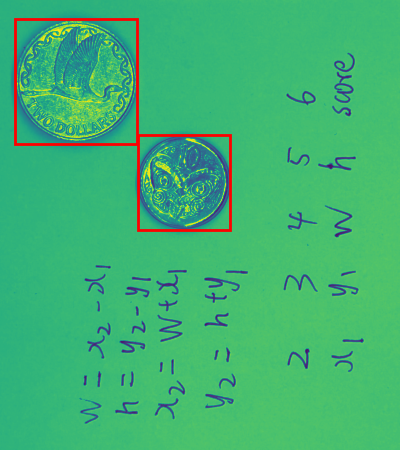 TWO DOLLARS
w = x₂ - x₁
h = y₂ - y₁
x₂ = w + x₁
y₂ = h + y₁
2 3 4 5 6
x₁ y₁ w h score